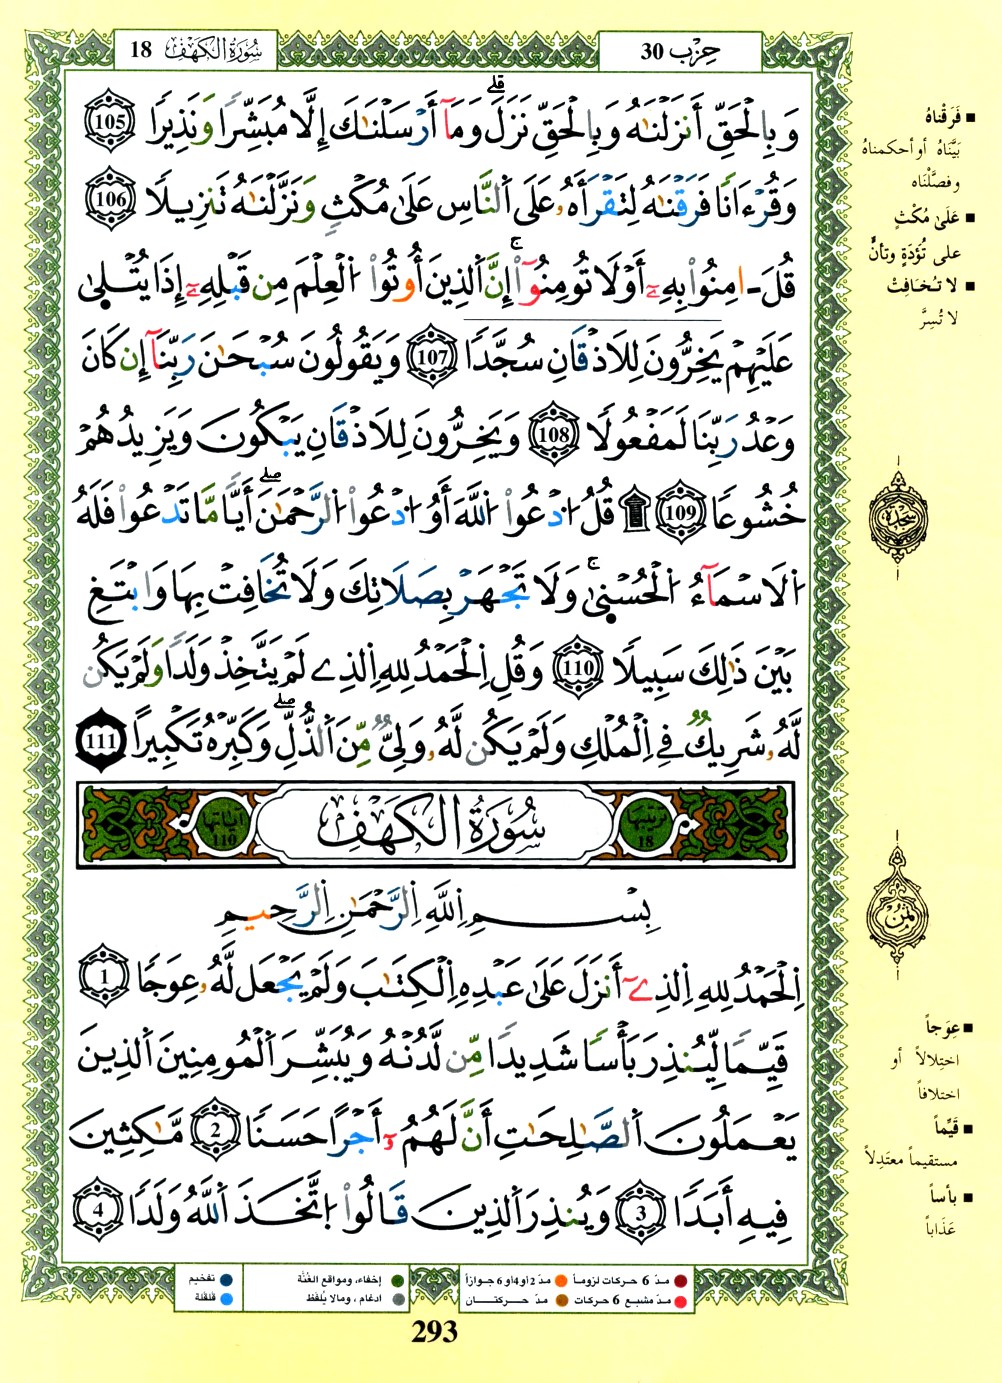 حِزْب 30
سُورَةُ الكَهْفِ 18
وَبِالْحَقِّ أَنزَلْنَٰهُ وَبِالْحَقِّ نَزَلَۖ وَمَآ أَرْسَلْنَٰكَ إِلَّا مُبَشِّرًا وَنَذِيرًا 105
وَقُرْءَانًا فَرَقْنَٰهُ لِتَقْرَأَهُۥ عَلَى اَلنَّاسِ عَلَىٰ مُكْثٍ وَنَزَّلْنَٰهُ تَنزِيلًا 106
قُلَ ـ اٰمِنُوا۟ بِهِۦٓ أَوْ لَا تُومِنُوٓا۟ۚ إِنَّ اَلذِينَ أُوتُوا۟ اُلْعِلْمَ مِن قَبْلِهِۦٓ إِذَا يُتْلَىٰ
عَلَيْهِمْ يَخِرُّونَ لِلَاذْقَانِ سُجَّدًا 107 وَيَقُولُونَ سُبْحَٰنَ رَبِّنَآ إِن كَانَ
وَعْدُ رَبِّنَا لَمَفْعُولًا 108 وَيَخِرُّونَ لِلَاذْقَانِ يَبْكُونَ وَيَزِيدُهُمْ
خُشُوعًا 109 ۩ قُلُ اُدْعُوا۟ اُللَّهَ أَوُ اُدْعُوا۟ اُلرَّحْمَٰنَۖ أَيًّا مَّا تَدْعُوا۟ فَلَهُ
اُلَاسْمَآءُ اُلْحُسْنَىٰۚ وَلَا تَجْهَرْ بِصَلَاتِكَ وَلَا تُخَافِتْ بِهَا وَابْتَغِ
بَيْنَ ذَٰلِكَ سَبِيلًا 110 وَقُلِ اِلْحَمْدُ لِلهِ اِلذِے لَمْ يَتَّخِذْ وَلَدًا وَلَمْ يَكُن
لَّهُۥ شَرِيكٌ فِے اِلْمُلْكِ وَلَمْ يَكُن لَّهُۥ وَلِيٌّ مِّنَ اَلذُّلِّۖ وَكَبِّرْهُ تَكْبِيرًا 111
ترتيبها 18
سُورَةُ الكَهْفِ
آياتها 110
بِسْمِ اِللَّهِ اِلرَّحْمَٰنِ اِلرَّحِيمِ
اِلْحَمْدُ لِلهِ اِلذِےٓ أَنزَلَ عَلَىٰ عَبْدِهِ اِلْكِتَٰبَ وَلَمْ يَجْعَل لَّهُۥ عِوَجًا 1
قَيِّمًا لِّيُنذِرَ بَأْسًا شَدِيدًا مِّن لَّدُنْهُ وَيُبَشِّرَ اَلْمُومِنِينَ اَلذِينَ
يَعْمَلُونَ اَلصَّٰلِحَٰتِ أَنَّ لَهُمُۥٓ أَجْرًا حَسَنًا 2 مَّٰكِثِينَ
فِيهِ أَبَدًا 3 وَيُنذِرَ اَلذِينَ قَالُوا۟ اُتَّخَذَ اَللَّهُ وَلَدًا 4
■ فَرَقْنَاهُ
بَيَّنَاهُ أو أحكمناهُ
وفصَّلْنَاه
■ عَلَىٰ مُكْثٍ
على تُؤَدَةٍ وتأنٍّ
■ لا تُخَافِتْ
لا تُسِرَّ
سجدة
ثمن
■ عِوَجاً
اختِلالاً أو
اختلافاً
■ قَيِّماً
مستقيماً معتَدِلاً
■ بأساً
عَذَاباً
مدّ 6 حركات لزوماً
مدّ 2 أو 4 أو 6 جوازاً
إخفاء، ومواقع الغُنَّة
تفخيم
مدّ مشبع 6 حركات
مدّ حركتان
ادغام ، ومالا يُلفَظ
قلقلة
293